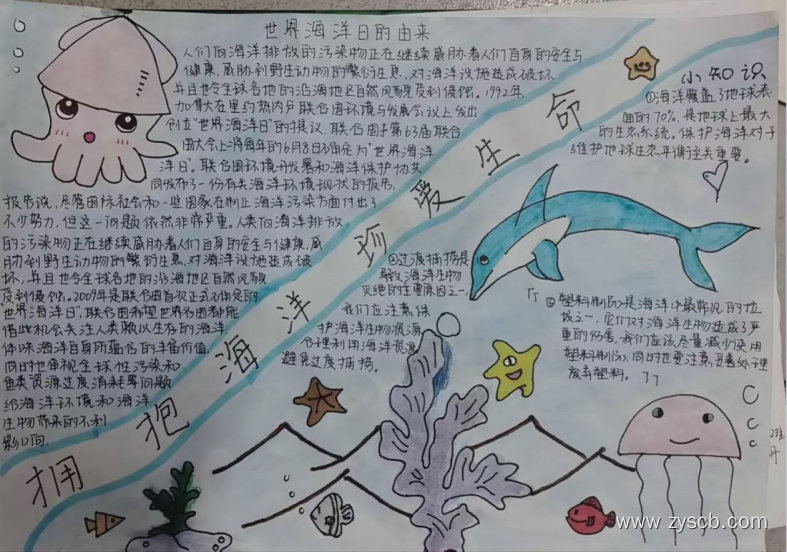 世界海洋日的由来
人们向海洋排放的污染物正在继续威胁着人们自身的安全与
健康,威胁到野生动物的繁衍生息,对海洋设施造成破坏,
并且也令全球各地的沿海地区自然风貌受到侵蚀。1992年,
加拿大在里约热内卢联合国环境与发展会议上发出
创立"世界海洋日"的提议,联合国于第63届联合
国大会上将每年的6月8日确定为"世界海洋
洋日"。联合国环境开发署和海洋保护协会
同发布了一份有关海洋环境现状的报告,
报告说,尽管国际社会和一些国家在制止海洋污染方面付出了
不少努力,但这一问题依然非常严重。人类向海洋排放
的污染物正在继续威胁着人们自身的安全与健康,威
胁到野生动物的繁衍生息,对海洋设施造成破
坏,并且也令全球各地的沿海地区自然风貌
受到侵蚀。2009年是联合国首次正式确定的
"世界海洋日",联合国希望世界各国都能
借此机会关注人类赖以生存的海洋,
体味海洋自身所蕴含的丰富价值,
同时也审视全球性污染和
鱼类资源过度消耗等问题
给海洋环境和海洋
生物带来的不利
影响。
拥抱海洋珍爱生命
小知识
①海洋覆盖了地球表
面的70%,是地球上最大
的生态系统。保护海洋对于
维护地球生态平衡至关重要。
②过渡捕捞是
导致海洋生物
灭绝的主要原因之一,
我们应注意保
护海洋生物资源,
合理利用海洋资源,
避免过度捕捞。
塑料制品是海洋中最常见的垃
圾之一,它们对海洋生物造成了严
重的伤害,我们应该尽量减少使用
塑料制品,同时也要注意妥善处理
废弃塑料。
www.zyscb.com